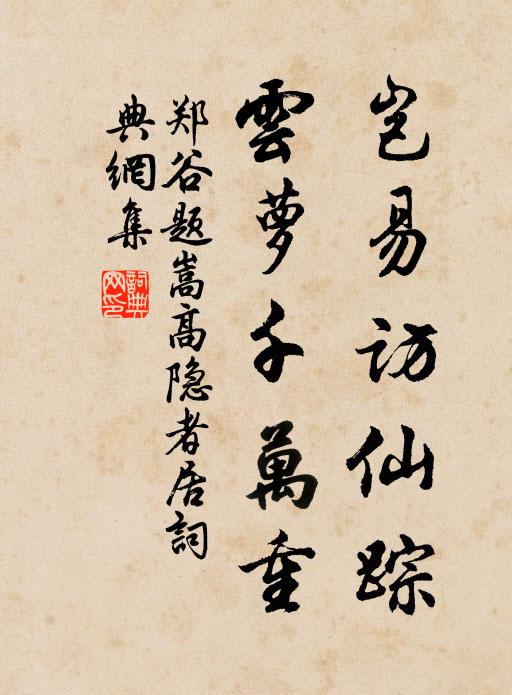 岂易访仙踪
雲萝千萬重
郑谷题嵩高隐者居詞
典網集
詞典网印